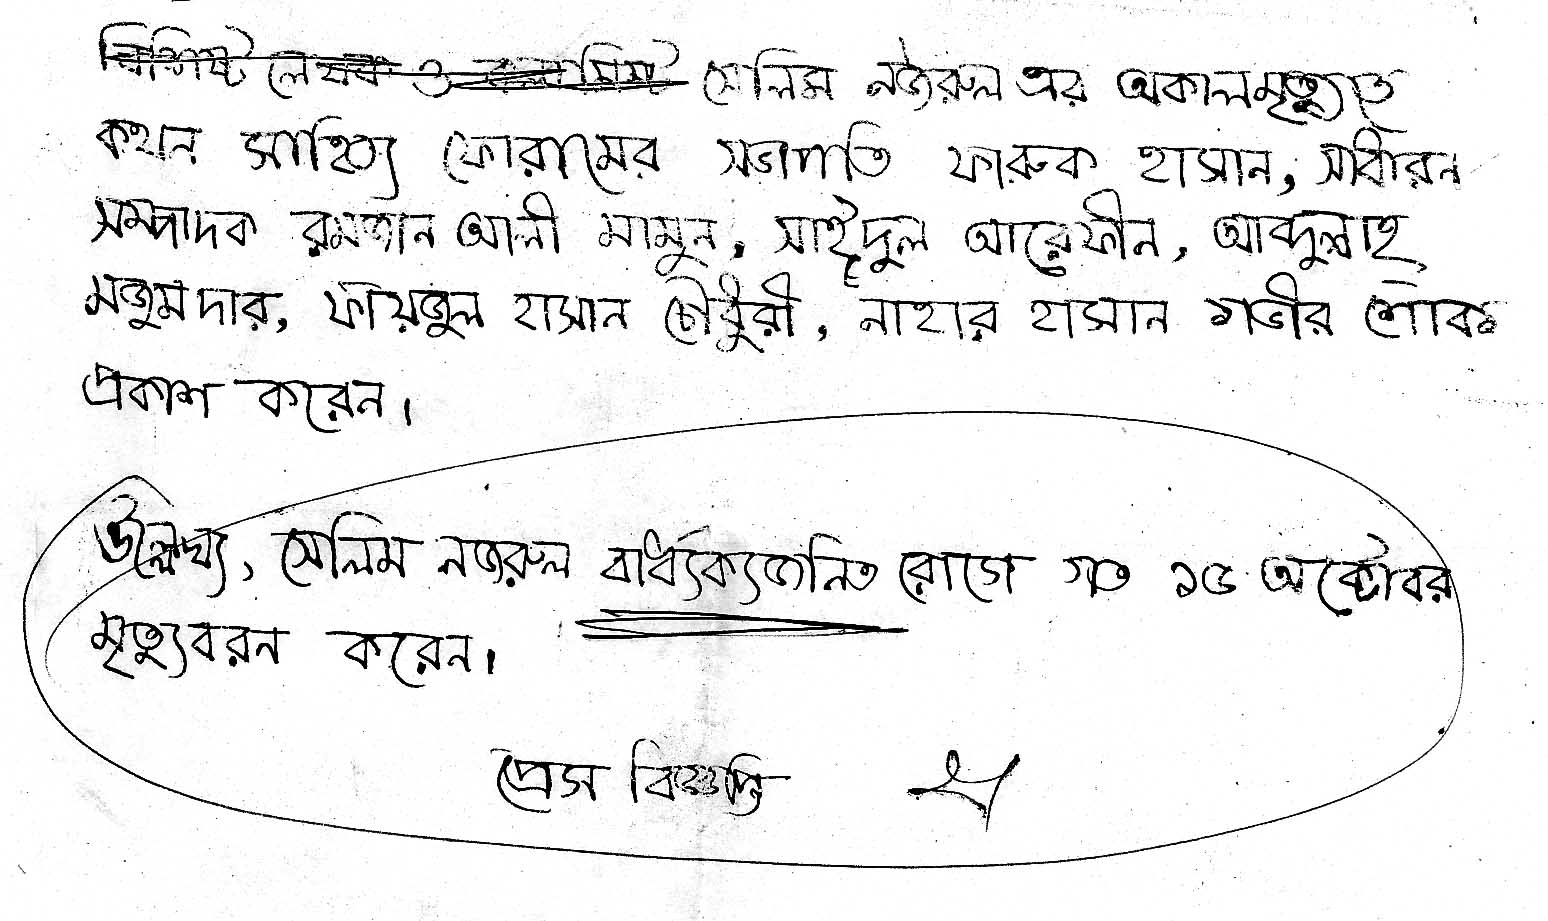 বিশিষ্ট লেখক ও কলামিস্ট সেলিম নজরুল এর অকালমৃত্যুতে
কথন সাহিত্য ফোরামের সভাপতি ফারুক হাসান, সাধারন
সম্পাদক রমজান আলী মামুন, সাইদুল আরেফীন, আব্দুল্লাহ
মজুমদার, ফায়জুল হাসান চৌধুরী, নাহার হাসান গভীর শোক
প্রকাশ করেন।
উল্লেখ্য, সেলিম নজরুল বার্ধ্যক্যজনিত রোগে গত ১৫ অক্টোবর
মৃত্যুবরন করেন।
প্রেস বিজ্ঞপ্তি